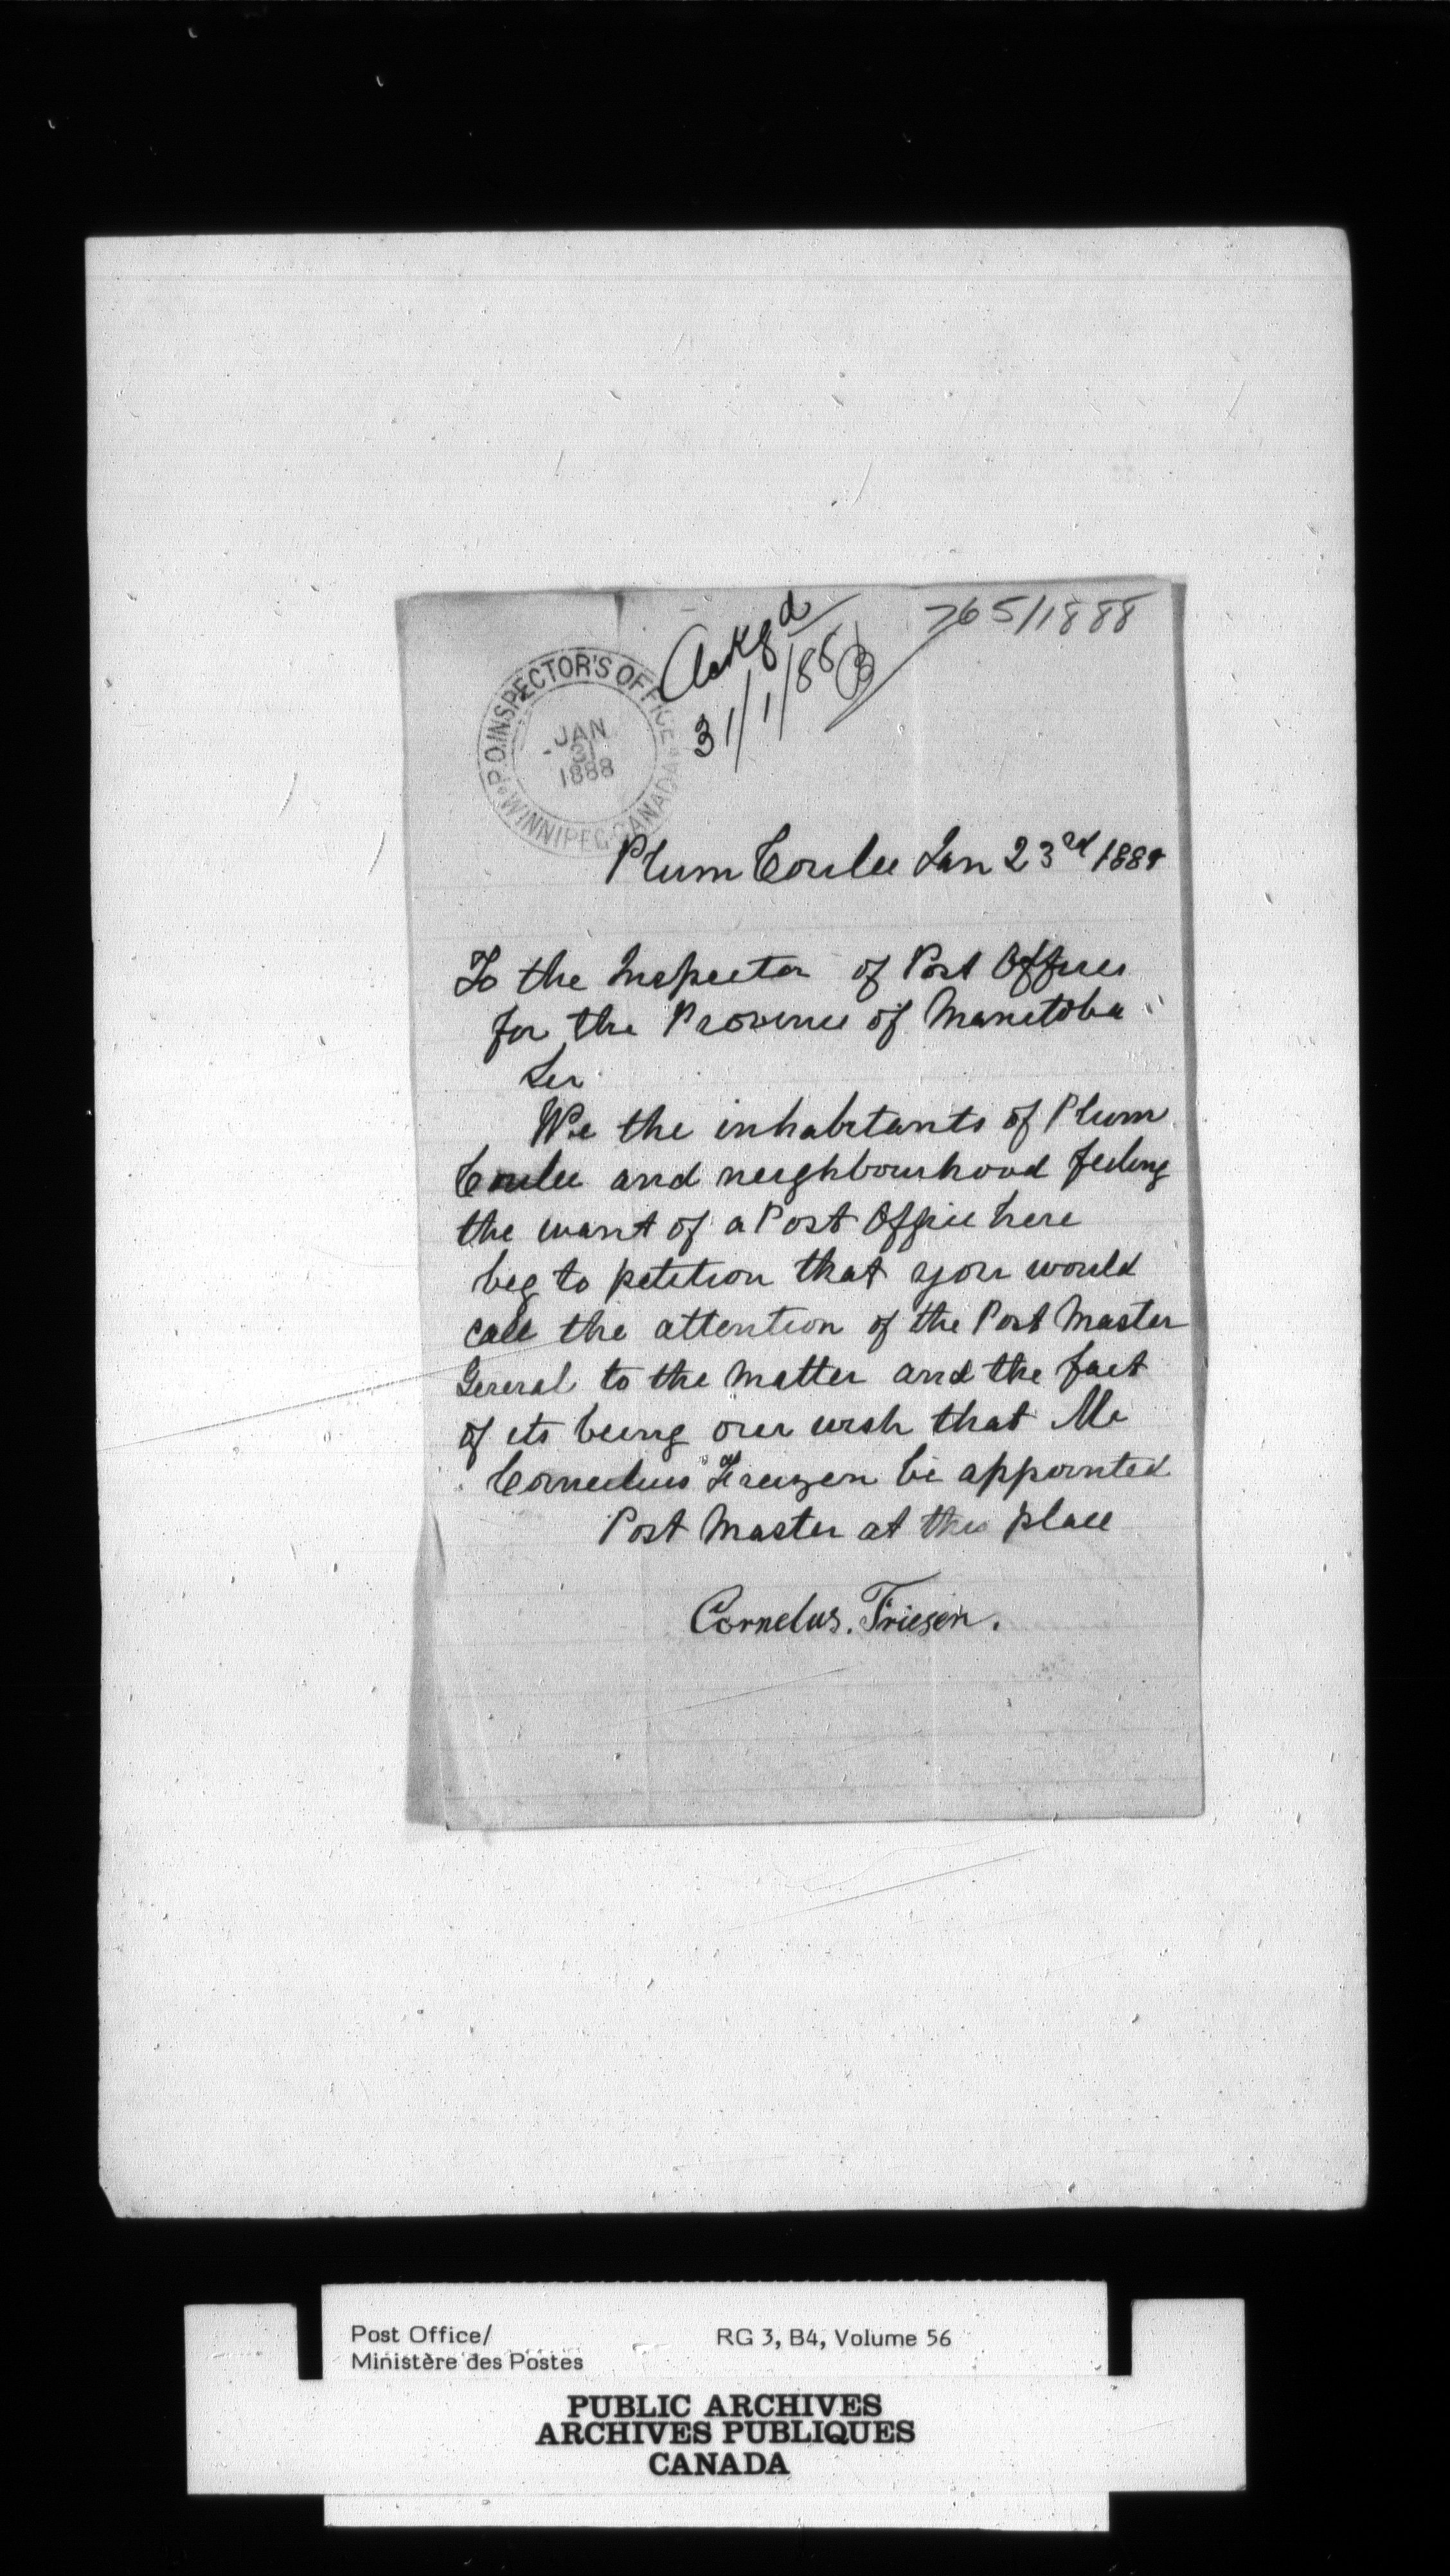 765/1888
Ackgd
31/1/88
P.O. INSPECTOR'S OFFICE
JAN
31
1888
WINNIPEG-CANADA
Plum Coulee Jan 23rd 1888
To the Inspector of Post Offices
for the Province of Manitoba
Sir
We the inhabitants of Plum
Coulee and neighbourhood feeling
the want of a Post Office here
beg to petition that you would
call the attention of the Post Master
General to the matter and the fact
of its being our wish that Mr
Cornelius be appointed
Post Master at this place
Cornelus. Friesen.
Post Office/
Ministère des Postes
RG 3, B4, Volume 56
PUBLIC ARCHIVES
ARCHIVES PUBLIQUES
CANADA